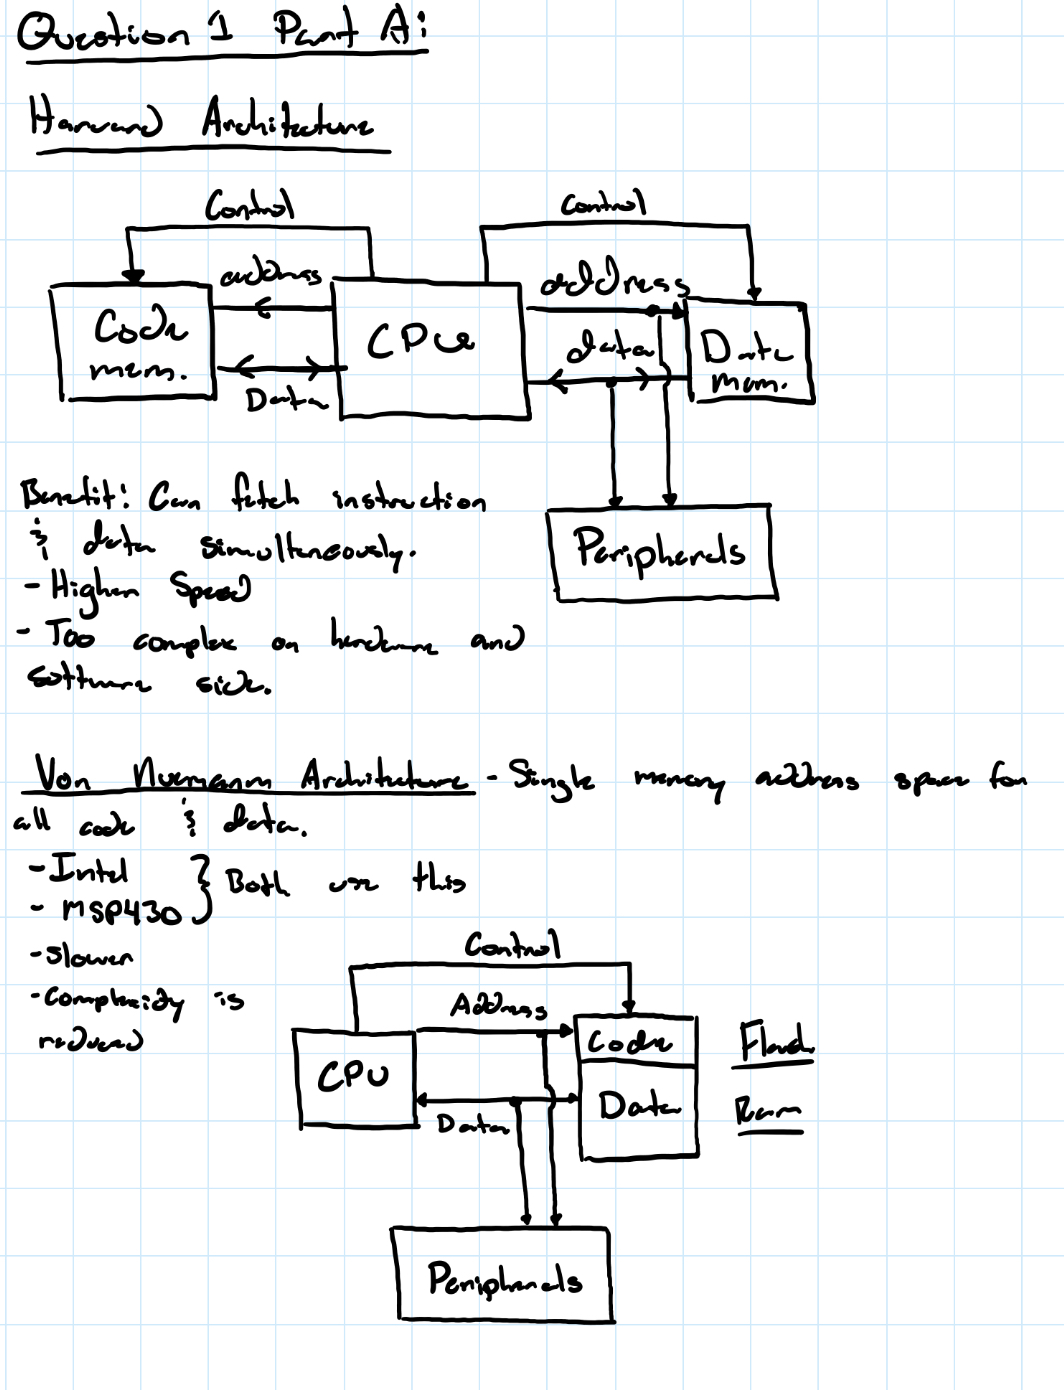 Question 1 Part A:
Harvard Architecture
Control
Control
address
address
Code
mem.
CPU
data
Data
mem.
Data
Benefit: Can fetch instruction
& data simultaneously.
Peripherals
- Higher Speed
- Too complex on hardware and
software side.
Von Nuemann Architecture - Single memory address space for
all code & data.
- Intel
- MSP430 } Both use this
- Slower
Control
- Complexity is
reduced
Address
Code
Flash
CPU
Data
Ram
Data
Peripherals